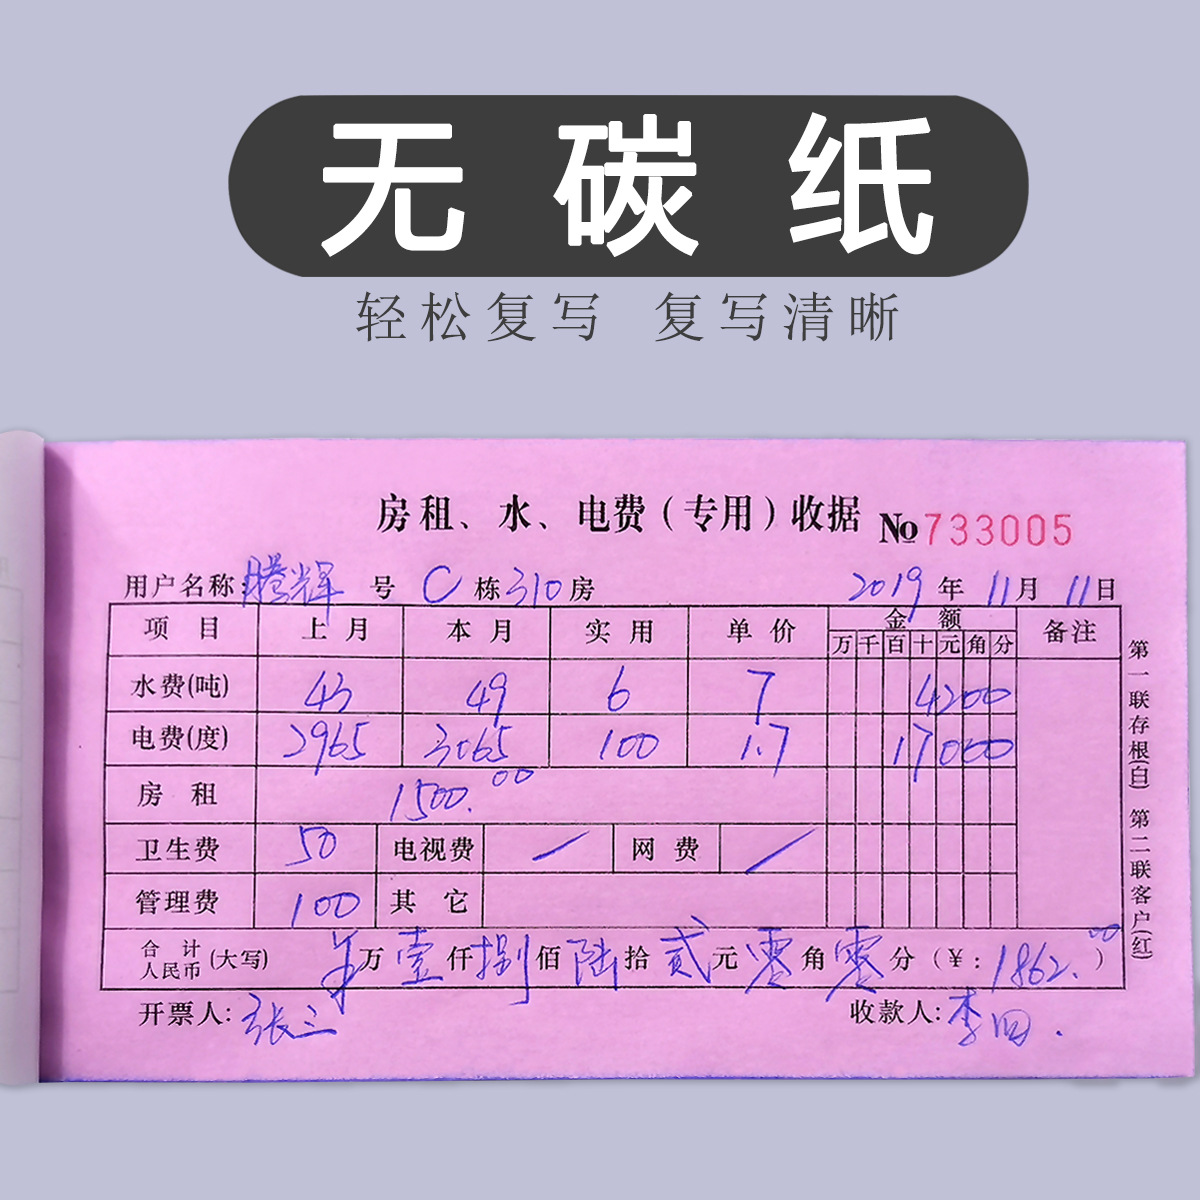 无碳纸
轻松复写 复写清晰
房租、水、电费(专用)收据 №733005
用户名称:腾辉 号 C 栋 310 房 2019 年 11 月 11 日
项目 上月 本月 实用 单价 金额 备注
万 千 百 十 元 角 分
水费(吨) 43 49 6 7 4200
电费(度) 2965 3065 100 1.7 17000
房租 1500.00
卫生费 50 电视费 / 网费 /
管理费 100 其它
合计人民币(大写) 万 壹 仟 捌 佰 陆 拾 贰 元 零 角 零 分 (¥:1862.00)
开票人:张三 收款人:李四.
第一联存根(白) 第二联客户(红)